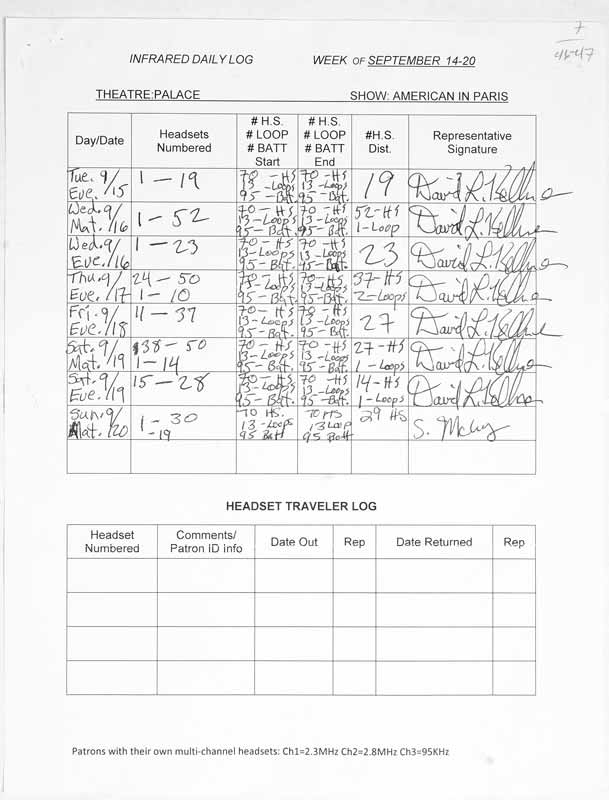 7
46-47
INFRARED DAILY LOG WEEK OF SEPTEMBER 14-20
THEATRE:PALACE SHOW: AMERICAN IN PARIS
Day/Date Headsets Numbered # H.S. # LOOP # BATT Start # H.S. # LOOP # BATT End #H.S. Dist. Representative Signature
Tue. 9/15 Eve. 1 - 19 70 - HS 13 - Loops 95 - Bat. 70 - HS 13 - Loops 95 - Bat. 19 David L. Kellner
Wed. 9/16 Mat. 1 - 52 70 - HS 13 - Loops 95 - Bat. 70 - HS 13 - Loops 95 - Bat. 52 - HS 1 - Loop David L. Kellner
Wed. 9/16 Eve. 1 - 23 70 - HS 13 - Loops 95 - Bat. 70 - HS 13 - Loops 95 - Bat. 23 David L. Kellner
Thu. 9/17 Eve. 24 - 50 1 - 10 70 - HS 13 - Loops 95 - Bat. 70 - HS 13 - Loops 95 - Bat. 37 - HS 2 - Loops David L. Kellner
Fri. 9/18 Eve. 11 - 37 70 - HS 13 - Loops 95 - Bat. 70 - HS 13 - Loops 95 - Bat. 27 David L. Kellner
Sat. 9/19 Mat. 38 - 50 1 - 14 70 - HS 13 - Loops 95 - Bat. 70 - HS 13 - Loops 95 - Bat. 27 - HS 1 - Loops David L. Kellner
Sat. 9/19 Eve. 15 - 28 70 - HS 13 - Loops 95 - Bat. 70 - HS 13 - Loops 95 - Bat. 14 - HS 1 - Loops David L. Kellner
Sun. 9/20 Mat. 1 - 30 - 19 70 HS. 13 - Loops 95 Batt 70 HS 13 Loop 95 Batt 29 HS S.
HEADSET TRAVELER LOG
Headset Numbered Comments/ Patron ID info Date Out Rep Date Returned Rep
Patrons with their own multi-channel headsets: Ch1=2.3MHz Ch2=2.8MHz Ch3=95KHz